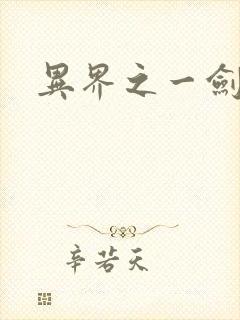 異界之一劍
辛若天